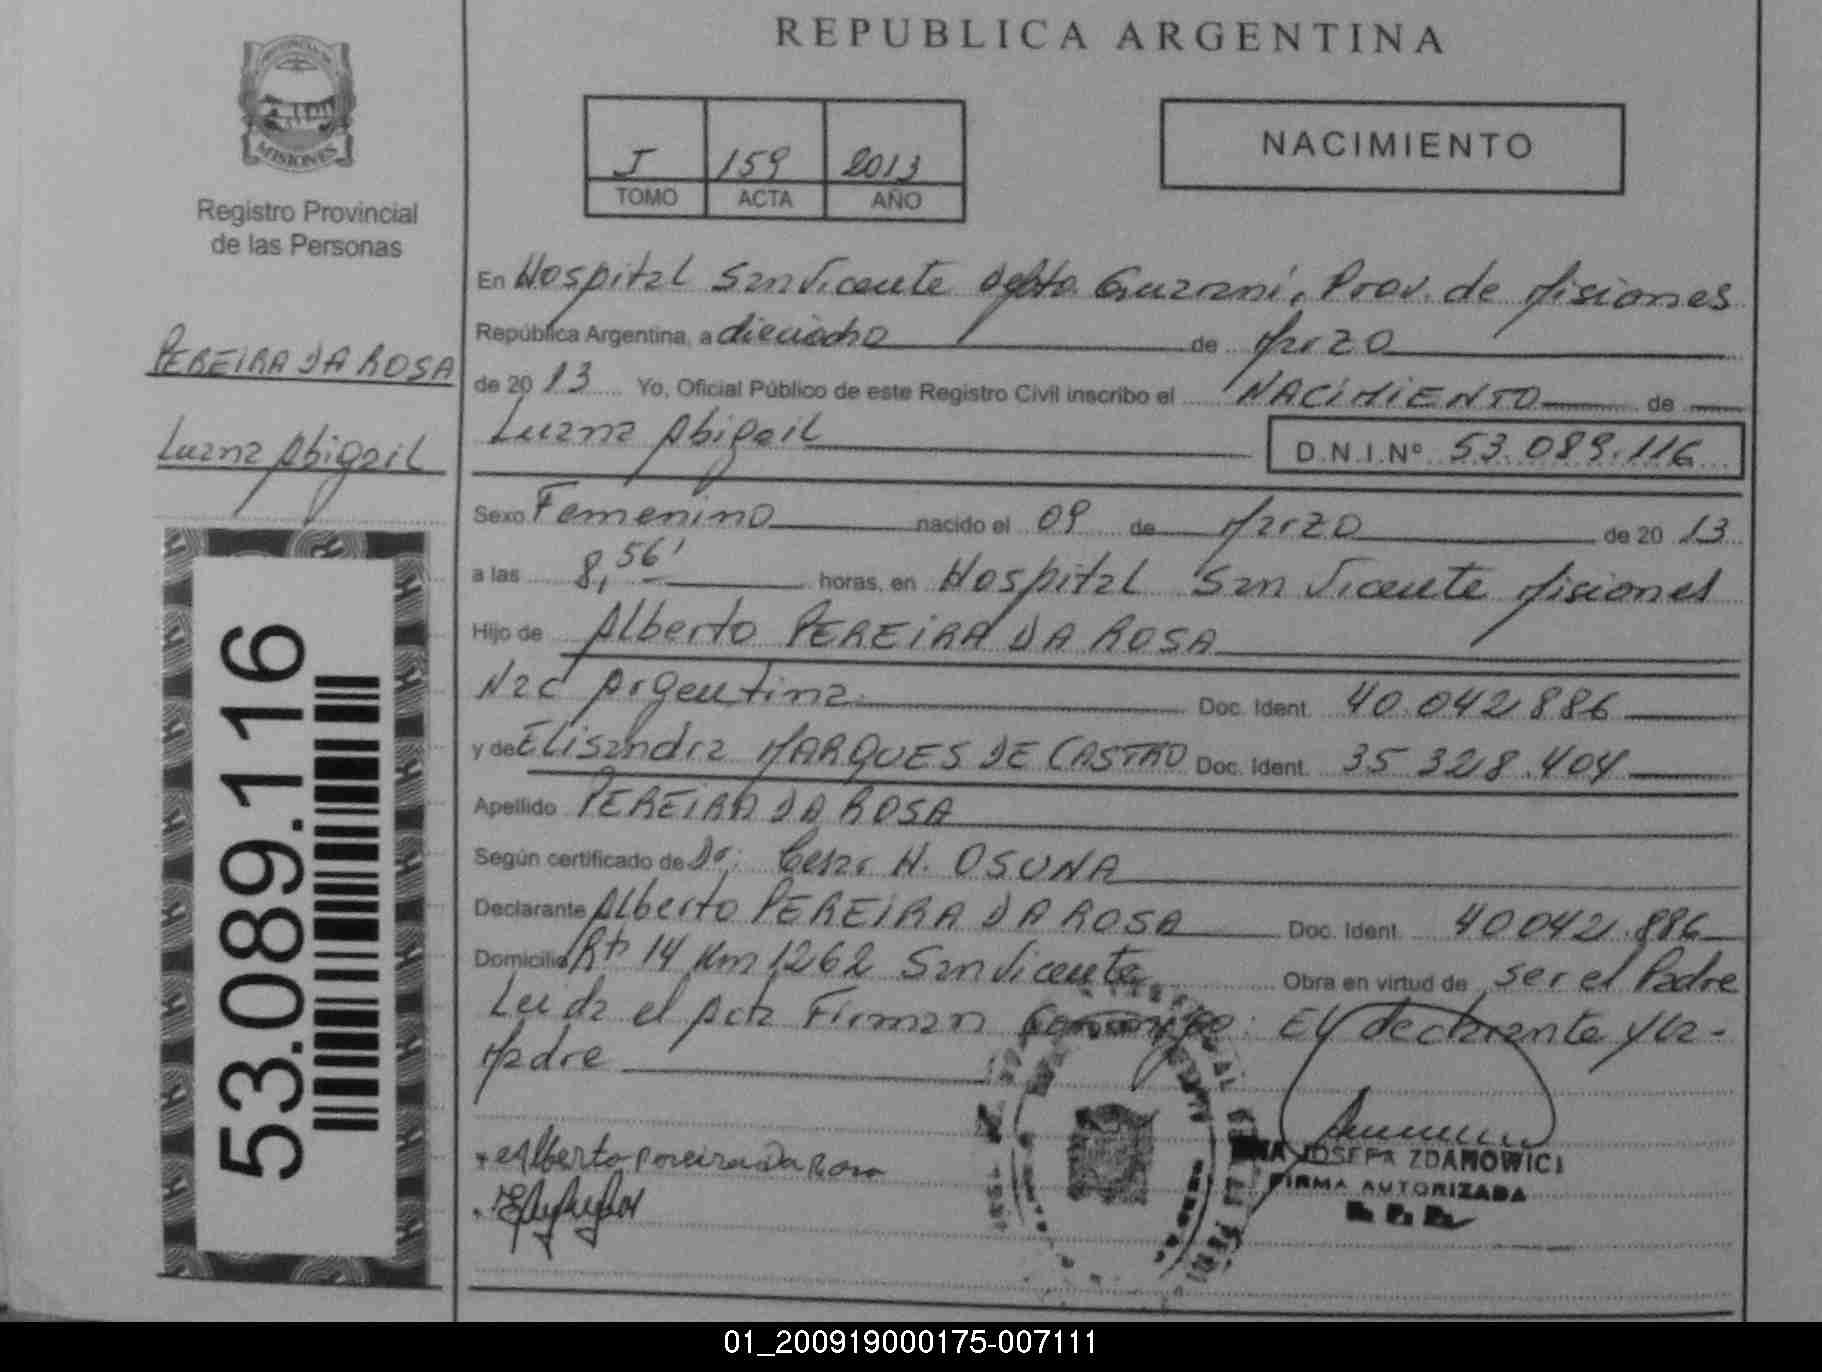 REPUBLICA ARGENTINA
MISIONES
Registro Provincial
de las Personas
I 159 2013
TOMO ACTA AÑO
NACIMIENTO
PEREIRA DA ROSA
Luana Abigail
53.089.116
En Hospital San Vicente Depto Guarani, Prov. de Misiones
República Argentina, a dieciocho de Marzo
de 20 13 Yo, Oficial Público de este Registro Civil inscribo el NACIMIENTO de
Luana Abigail D.N.I.Nº 53.089.116
Sexo Femenino nacido el 09 de Marzo de 20 13
a las 8,56' horas, en Hospital San Vicente Misiones
Hijo de Alberto PEREIRA DA ROSA
Nac Argentina Doc. Ident. 40.042.886
y de Elisandra MARQUES DE CASTRO Doc. Ident. 35.328.404
Apellido PEREIRA DA ROSA
Según certificado de Dr: Cesar H. OSUNA
Declarante Alberto PEREIRA DA ROSA Doc. Ident. 40.042.886
Domicilio Rta 14 Km 1262 San Vicente Obra en virtud de ser el Padre
Leida el Acta Firman Conmigo: El declarante y la-
Madre
Alberto Pereira Da Rosa
JOSEFA ZDANOWICZ
FIRMA AUTORIZADA
R.P.P.
01_200919000175-007111